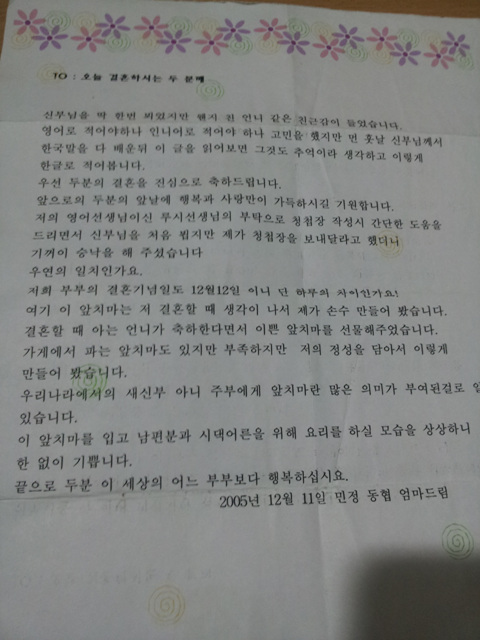 TO : 오늘 결혼하시는 두 분께
신부님을 딱 한번 뵈었지만 왠지 친 언니 같은 친근감이 들었습니다.
영어로 적어야하나 인니어로 적어야 하나 고민을 했지만 먼 훗날 신부님께서
한국말을 다 배운뒤 이 글을 읽어보면 그것도 추억이라 생각하고 이렇게
한글로 적어봅니다.
우선 두분의 결혼을 진심으로 축하드립니다.
앞으로의 두분의 앞날에 행복과 사랑만이 가득하시길 기원합니다.
저의 영어선생님이신 루시선생님의 부탁으로 청첩장 작성시 간단한 도움을
드리면서 신부님을 처음 뵙지만 제가 청첩장을 보내달라고 했더니
기꺼이 승낙을 해 주셨습니다
우연의 일치인가요.
저희 부부의 결혼기념일도 12월12일 이니 단 하루의 차이인가요!
여기 이 앞치마는 저 결혼할 때 생각이 나서 제가 손수 만들어 봤습니다.
결혼할 때 아는 언니가 축하한다면서 이쁜 앞치마를 선물해주었습니다.
가게에서 파는 앞치마도 있지만 부족하지만 저의 정성을 담아서 이렇게
만들어 봤습니다.
우리나라에서의 새신부 아니 주부에게 앞치마란 많은 의미가 부여된걸로 알
있습니다.
이 앞치마를 입고 남편분과 시댁어른을 위해 요리를 하실 모습을 상상하니
한 없이 기쁩니다.
끝으로 두분 이 세상의 어느 부부보다 행복하십시요.
2005년 12월 11일 민정 동협 엄마드림